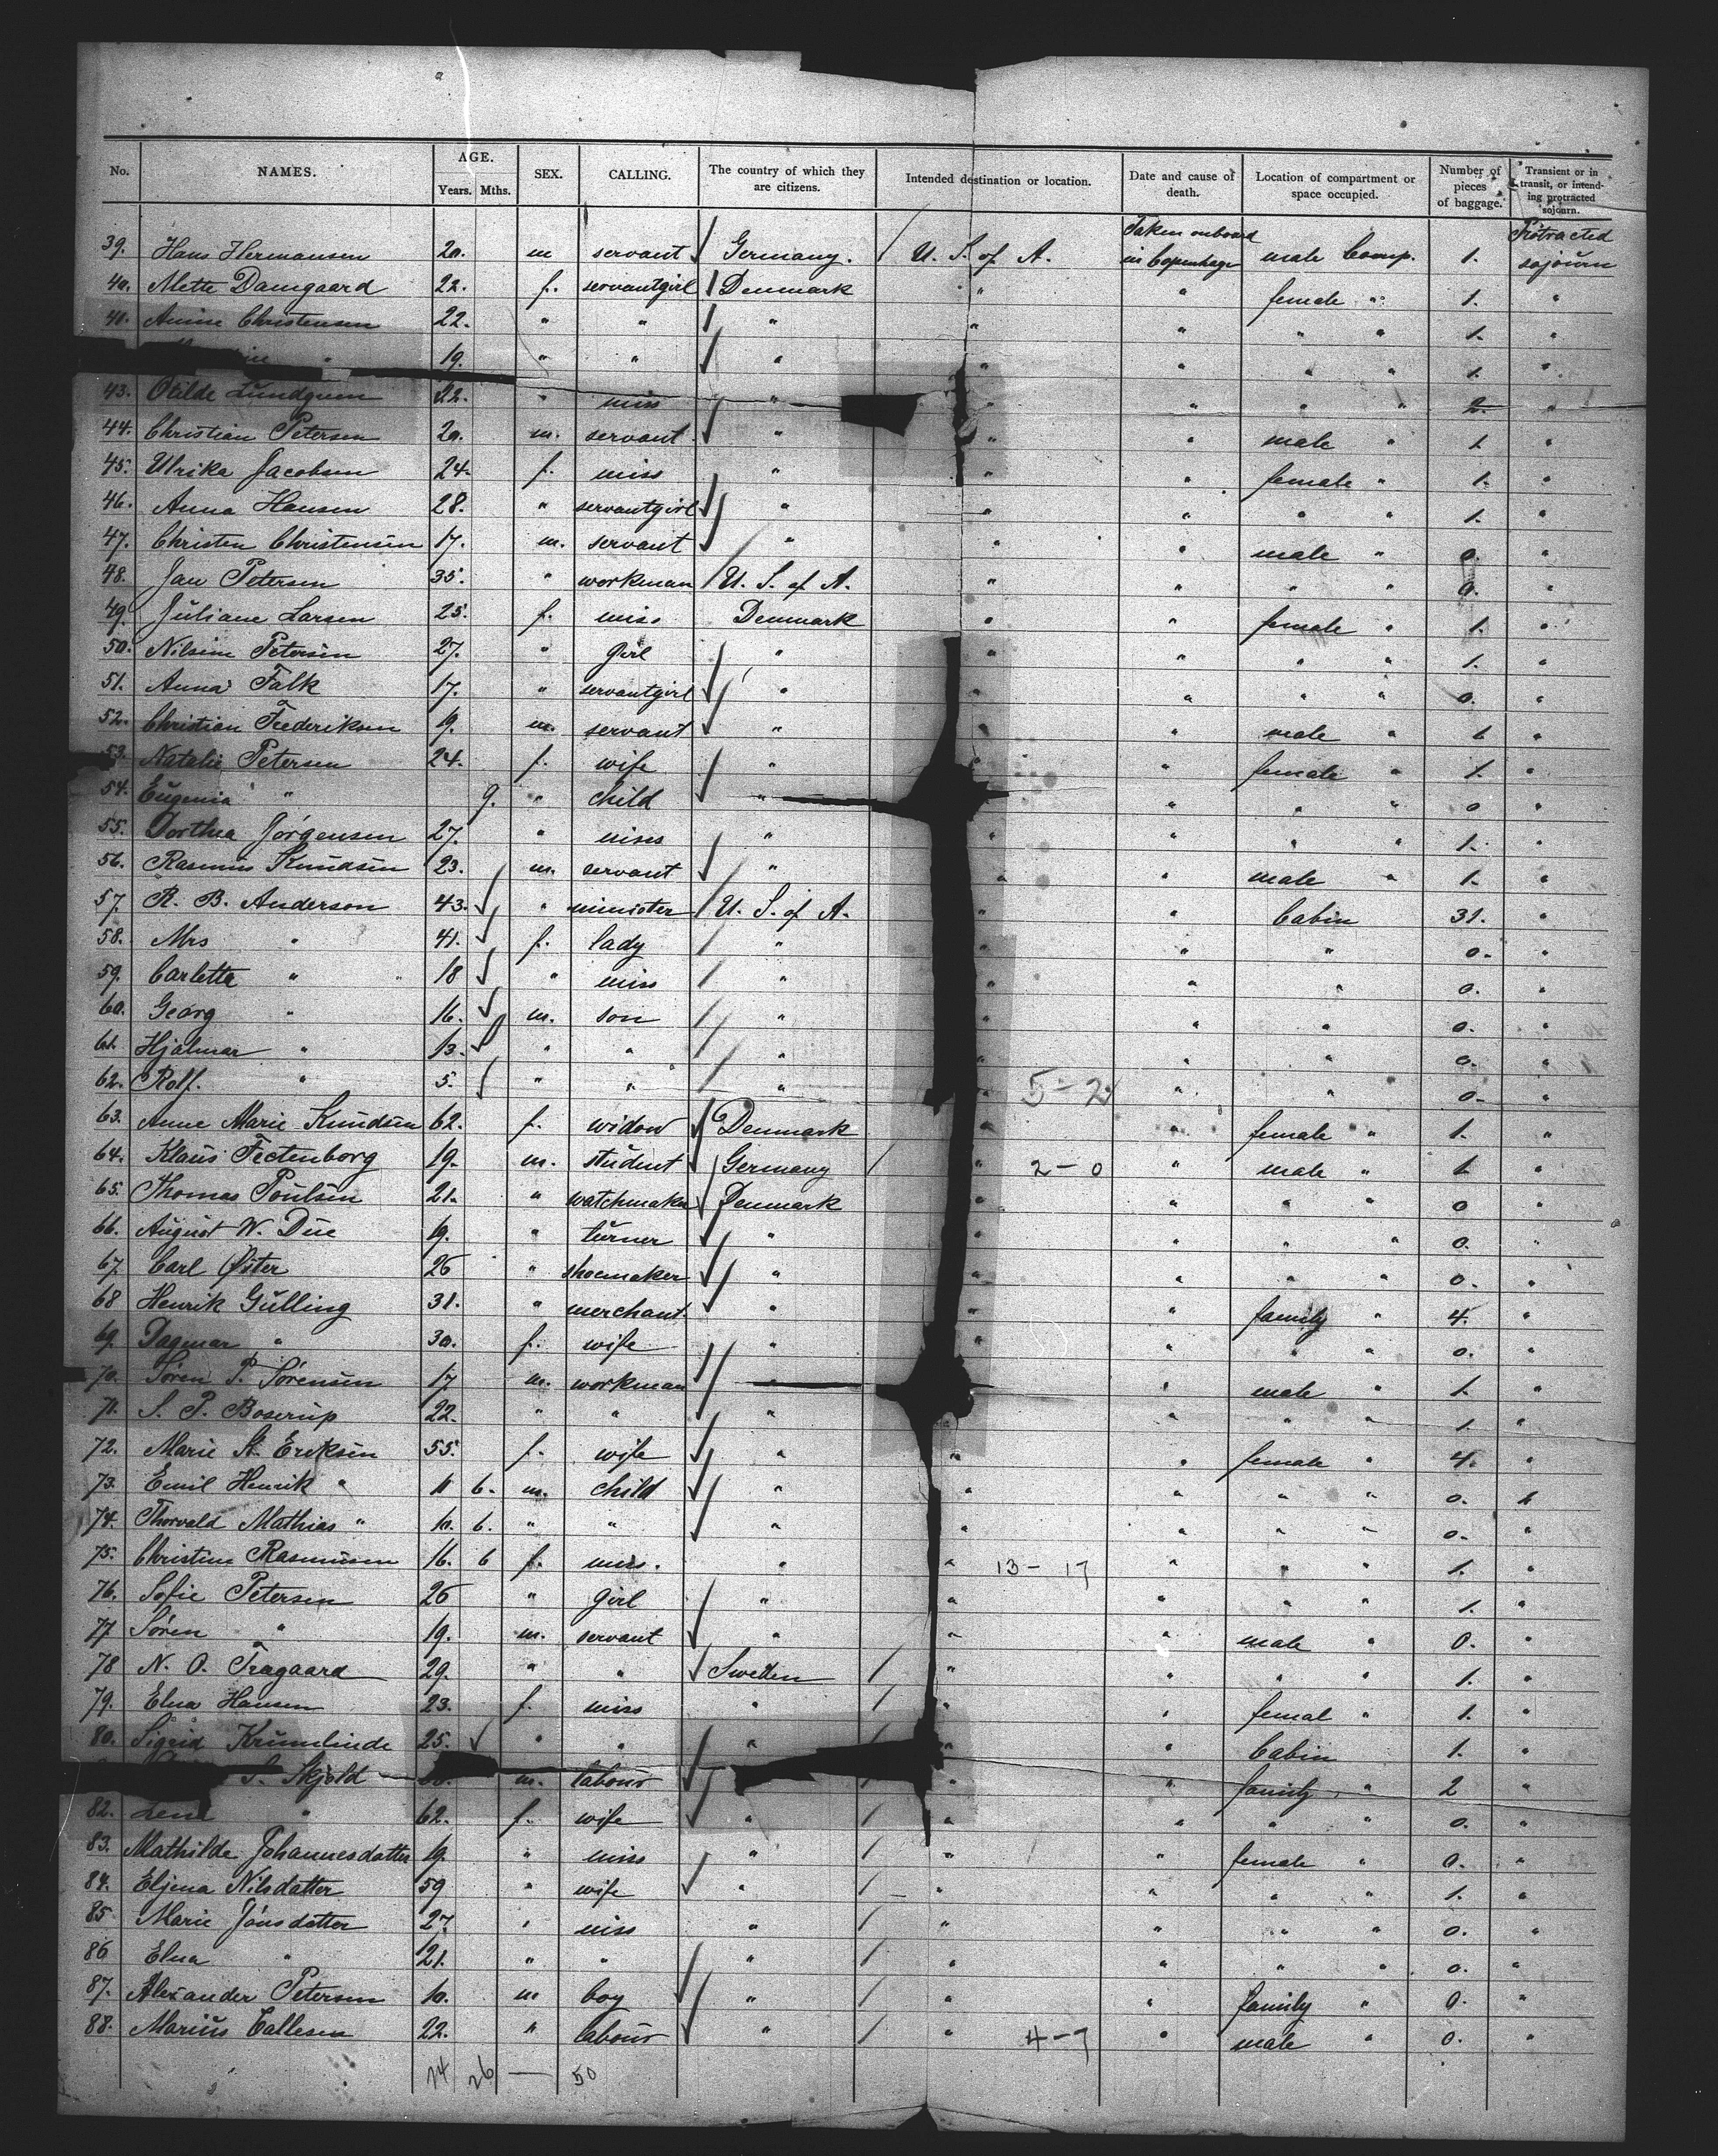 No. NAMES. AGE. Years. Mths. SEX. CALLING. The country of which they are citizens. Intended destination or location. Date and cause of death. Location of compartment or space occupied. Number of pieces of baggage. Transient or in transit, or intending protracted sojourn.
39. Hans Hermansen 20. m servant Germany. U. S. of A. Taken onboard in Copenhagn male Comp. 1. Protracted sojourn
40. Mette Damgaard 22. f. servantgirl Denmark " " female " 1. "
41. Anine Christensen 22. " " " " " " " 1. "
" 19. " " " " " " " 1. "
43. Otilde 22. " miss " " " " " 2. "
44. Christian Petersen 20. m. servant " " " male " 1. "
45. Ulrika Jacobsen 24. f. miss " " " female " 1. "
46. Anna Hansen 28. " servantgirl " " " " " 1. "
47. Christen Christensen 17. m. servant " " " male " 0. "
48. Jan Petersen 35. " workman U. S. of A. " " " " 0. "
49. Juliane Larsen 25. f. miss Denmark " " female " 1. "
50. Nilsine Petersen 27. " girl " " " " " 1. "
51. Anna Falk 17. " servantgirl " " " " " 0. "
52. Christian Frederiksen 19. m. servant " " " male " 1 "
53. Natalie Petersen 24. f. wife " " female " 1. "
54. Eugenia " 9. " child " " " " 0 "
55. Dorthea Jörgensen 27. " miss " " " " " 1. "
56. Rasmus Knudsen 23. m. servant " " " male " 1. "
57. R. B. Anderson 43. " minister U. S. of A. " " Cabin 31. "
58. Mrs " 41. f. lady " " " " 0. "
59. Carletta " 18 " miss " " " " 0. "
60. Georg " 16. m. son " " " " 0. "
61. Hjalmar " 13. " " " " " " 0. "
62. Rolf. " 5. " " " " 5-2 " " 0. "
63. Anne Marie Knudsen 62. f. widow Denmark " " female " 1. "
64. Klaus Fectenborg 19. m. student Germany " 2-0 " male " 1. "
65. Thomas Poulsen 21. " watchmaker Denmark " " " " 0 "
66. August W. Due 19. " turner " " " " " 0. "
67. Carl Øster 26 " shoemaker " " " " " 0. "
68 Henrik Gulling 31. " merchant. " " " family " 4. "
69. Dagmar " 30. f. wife " " " " " 0. "
70. Sören P. Sörensen 17 m. workman " " male " 1. "
71. S. P. Boserup 22. " " " " " " 1. "
72. Marie K. Eriksen 55. f. wife " " " female " 4. "
73. Emil Henrik " 11 6. m. child " " " " " 0. "
74. Thorvald Mathias " 10. 6. " " " " " " " 0. "
75. Christine Rasmussen 16. 6 f. miss. " " 13-17 " " " 1. "
76. Sofie Petersen 26 " girl " " " " " 1. "
77 Sören " 19. m. servant " " " male " 0. "
78 N. O. Tragaard 29. " " Sweden " " " " 1. "
79. Elna Hansen 23. f. miss " " " femal " 1. "
80. Sigrid Krumlinde 25. " " " " " Cabin 1. "
S. Skjold m. labour " " family " 2 "
82. Lena " 62. f. wife " " " " " 0. "
83. Mathilde Johannesdatter 19. " miss " " " female " 0. "
84. Eljena Nilsdatter 59 " wife " " " " " 1. "
85 Marie Jönsdatter 27. " miss " " " " " 0. "
86 Elna " 21. " " " " " " " 0. "
87. Alexander Petersen 10. m boy " " " family " 0. "
88. Marius Callesen 22. " labour " " 4-7 " male " 0. "
24 26 — 50